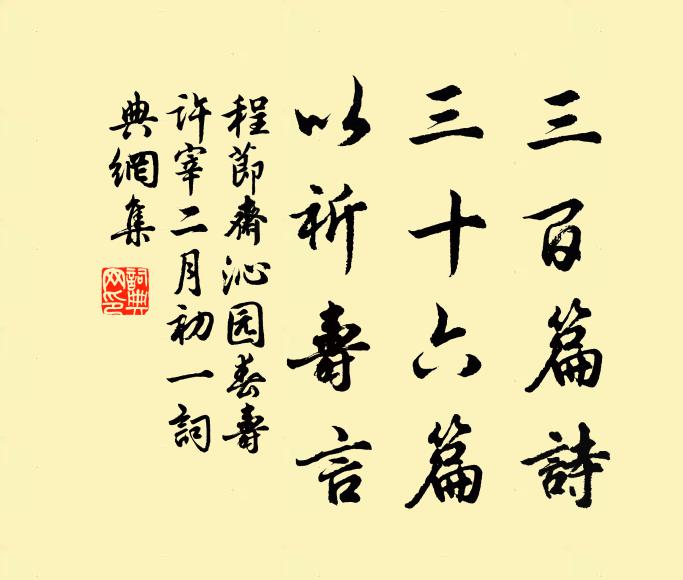 三百篇詩
三十六篇
以祈壽言
程節齋沁园春壽
許宰二月初一詞
典網集
詞典
网印